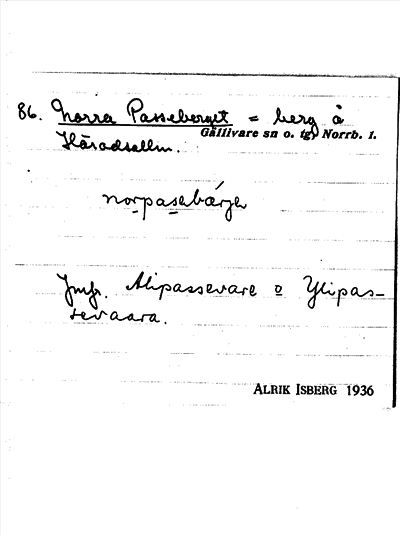 86. Norra Passeberget = berg å
Gällivare sn o. tg, Norrb. l.
Häradsallm.
norpasebärje
Jmfr. Alipassevare o Ylipas-
sevaara.
ALRIK ISBERG 1936